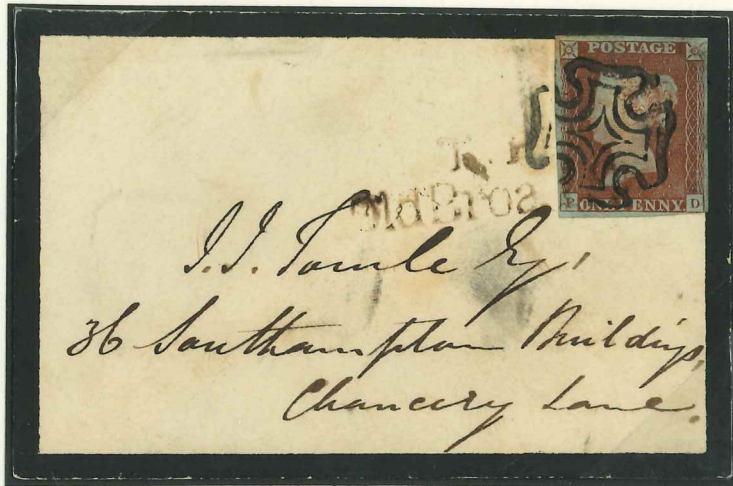 POSTAGE
ONE PENNY
D
Old Bros
J. J. Towle Esq,
36 Southampton Buildings,
Chancery Lane.